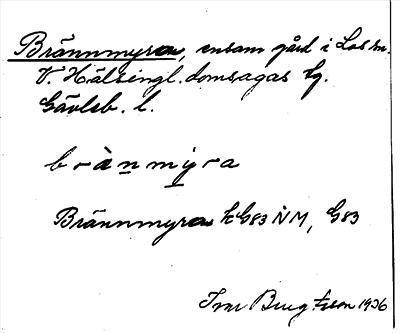 Brännmyra, ensam gård i Los sn.
V. Hälsingl. domsagas tg.
Gävleb. l.
brànmyra
Brännmyra k G83 NM, G83
Ivar Bengtsson 1936